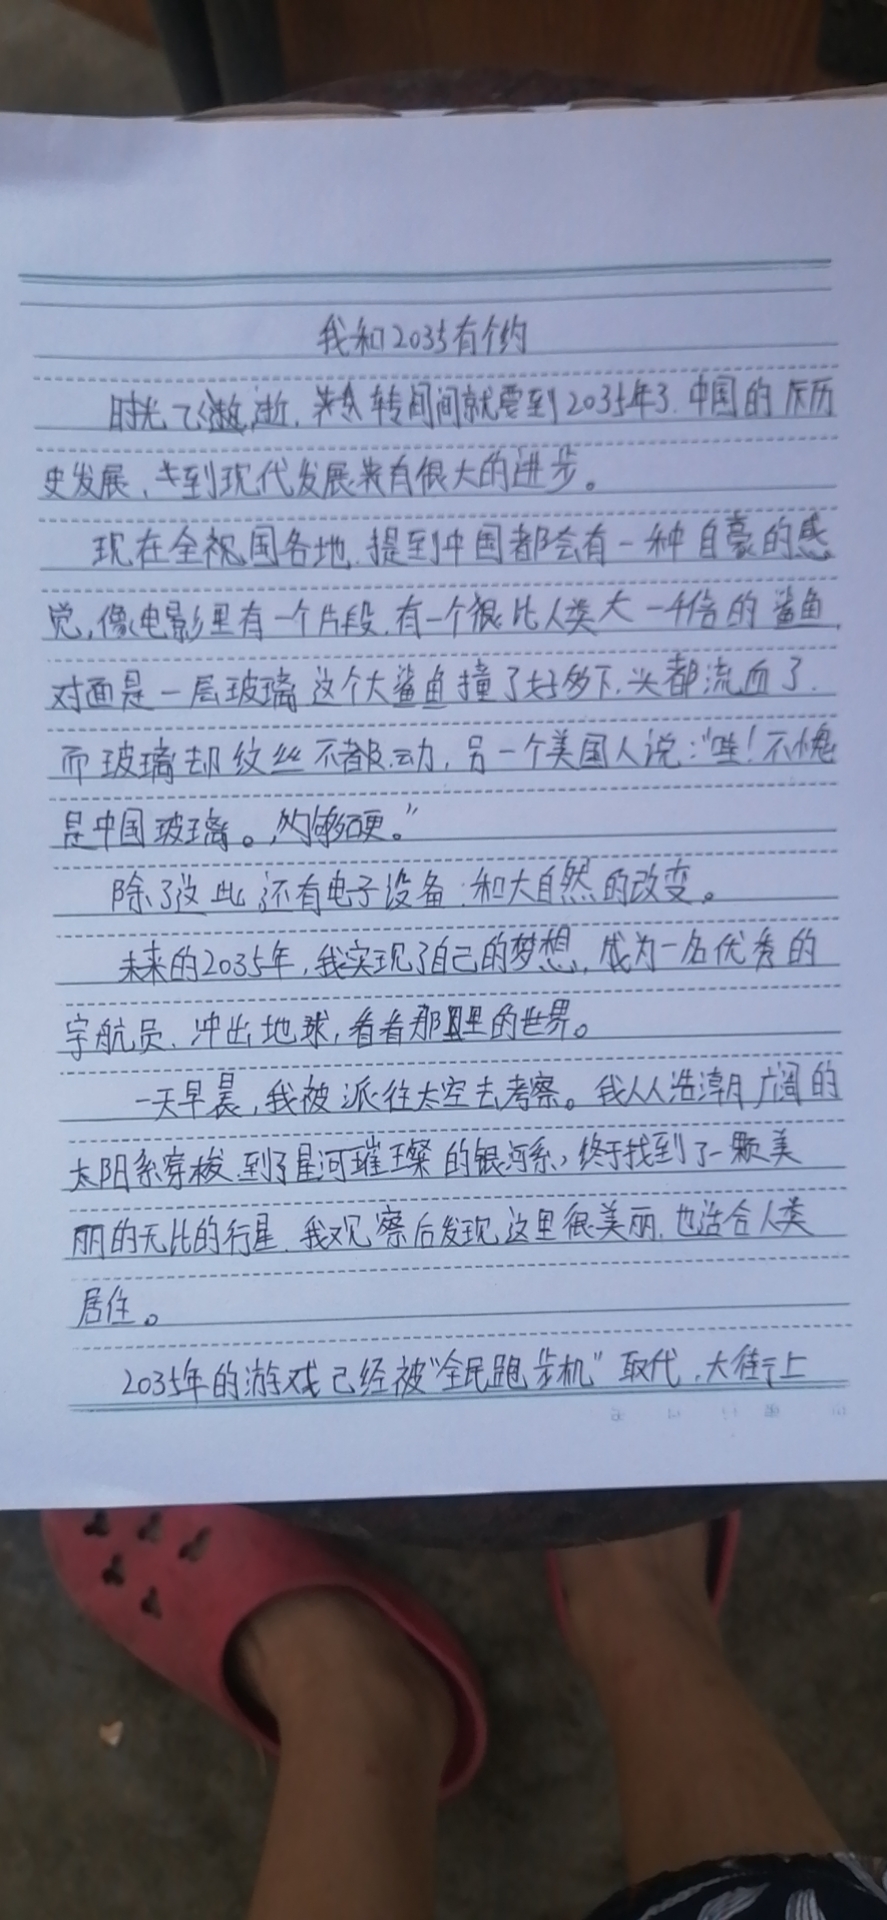 我和2035有个约
时光飞逝,转间间就要到2035年3.中国的历
史发展,到现代发展有很大的进步。
现在全祝国各地,提到中国都会有一种自豪的感
觉,像电影里有一个片段,有一个很比人类大一千倍的鲨鱼,
对面是一层玻璃这个大鲨鱼撞了好多下,头都流血了,
而玻璃却纹丝不都动,另一个美国人说:“哇!不愧
是中国玻璃。够硬。”
除了这此还有电子设备,和大自然的改变。
未来的2035年,我实现了自己的梦想,成为一名优秀的
宇航员,冲出地球,看看那里的世界。
一天早晨,我被派往太空去考察。我从浩潮广阔的
太阳系穿梭,到了星河璀璨的银河系,终于找到了一颗美
丽的无比的行星,我观察后发现这里很美丽,也适合人类
居住。
2035年的游戏已经被“全民跑步机”取代,大街上